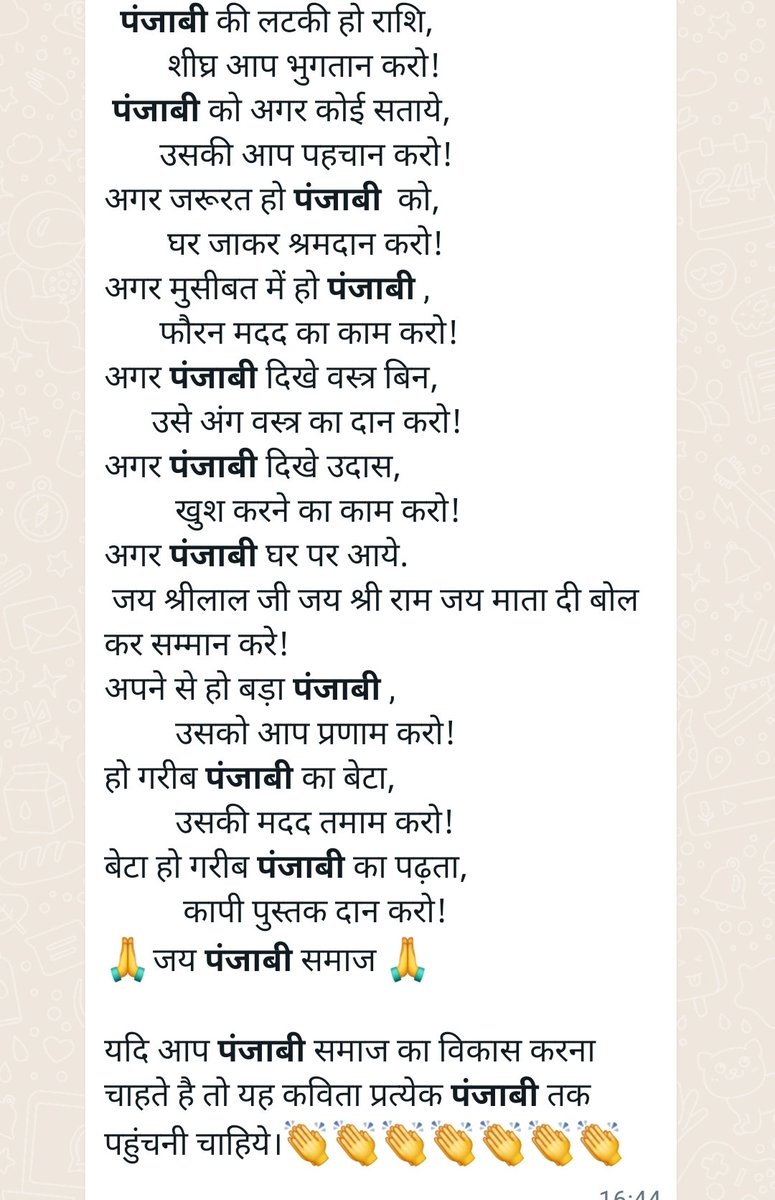 पंजाबी की लटकी हो राशि,
शीघ्र आप भुगतान करो!
पंजाबी को अगर कोई सताये,
उसकी आप पहचान करो!
अगर जरूरत हो पंजाबी को,
घर जाकर श्रमदान करो!
अगर मुसीबत में हो पंजाबी ,
फौरन मदद का काम करो!
अगर पंजाबी दिखे वस्त्र बिन,
उसे अंग वस्त्र का दान करो!
अगर पंजाबी दिखे उदास,
खुश करने का काम करो!
अगर पंजाबी घर पर आये.
जय श्रीलाल जी जय श्री राम जय माता दी बोल
कर सम्मान करे!
अपने से हो बड़ा पंजाबी ,
उसको आप प्रणाम करो!
हो गरीब पंजाबी का बेटा,
उसकी मदद तमाम करो!
बेटा हो गरीब पंजाबी का पढ़ता,
कापी पुस्तक दान करो!
🙏 जय पंजाबी समाज 🙏
यदि आप पंजाबी समाज का विकास करना
चाहते है तो यह कविता प्रत्येक पंजाबी तक
पहुंचनी चाहिये।👏👏👏👏👏👏👏
16:44